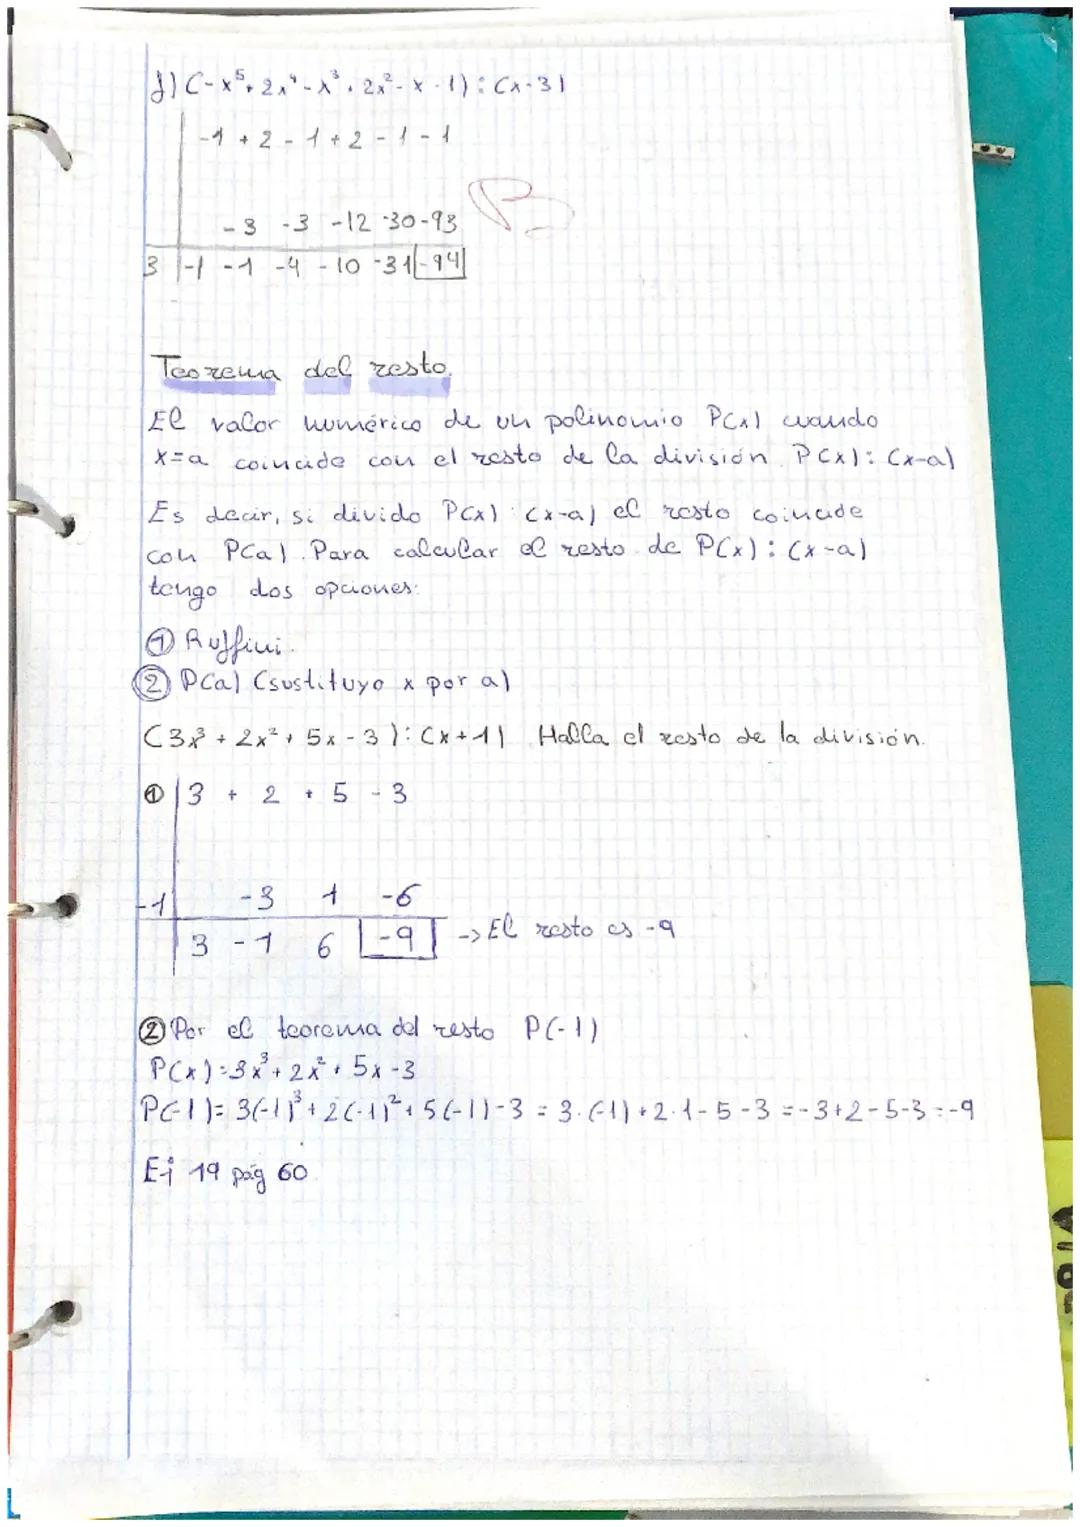 f) (-x⁵+2x⁴-x³+2x²-x-1):(x-3)
-1 +2 -1 +2 -1 -1
-3 -3 -12 -30 -93
B
3 -1 -1 -4 -10 -31 -94
Teorema del resto.
El valor numérico de un polinomio P(x) cuando
x=a coincide con el resto de la división P(x):(x-a)
Es decir, si divido P(x):(x-a) el resto coincide
con P(a). Para calcular el resto de P(x):(x-a)
tengo dos opciones:
① Ruffini.
② P(a) (sustituyo x por a)
(3x³+2x²+5x-3):(x+1) Halla el resto de la división.
① 3 + 2 + 5 - 3
-1 -3 1 -6
3 -1 6 -9 -> El resto es -9
② Por el teorema del resto P(-1)
P(x)=3x³+2x²+5x-3
P(-1)= 3(-1)³+2(-1)²+5(-1)-3 = 3·(-1)+2·1-5-3 =-3+2-5-3=-9
Ej 19 pág 60